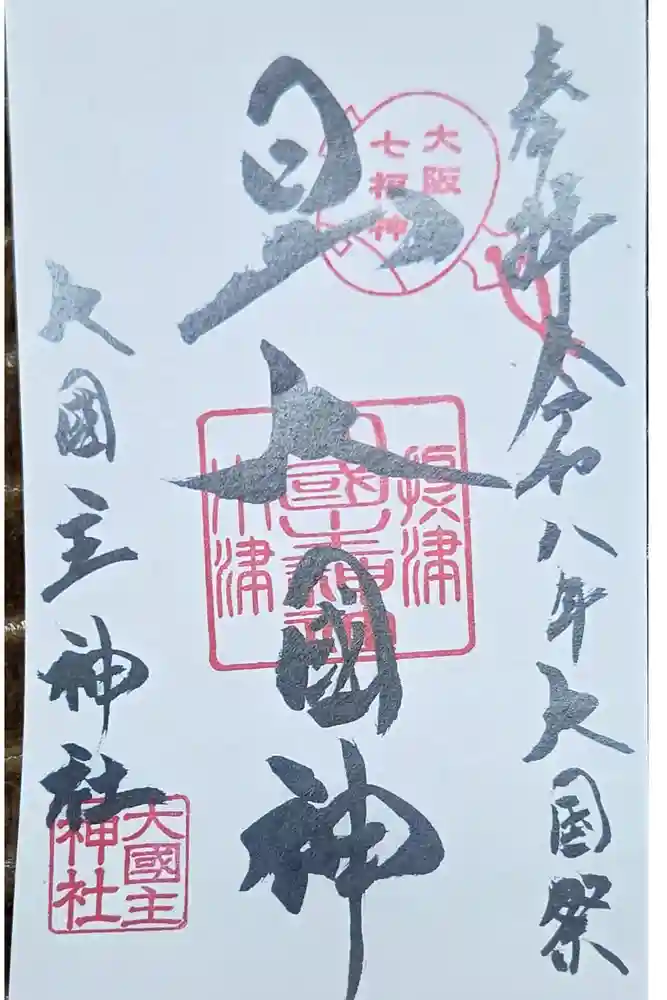 奉拝 令和八年大国祭
大阪
七福神
旦大國神
摂津
木津
大國主神社
大國主
神社